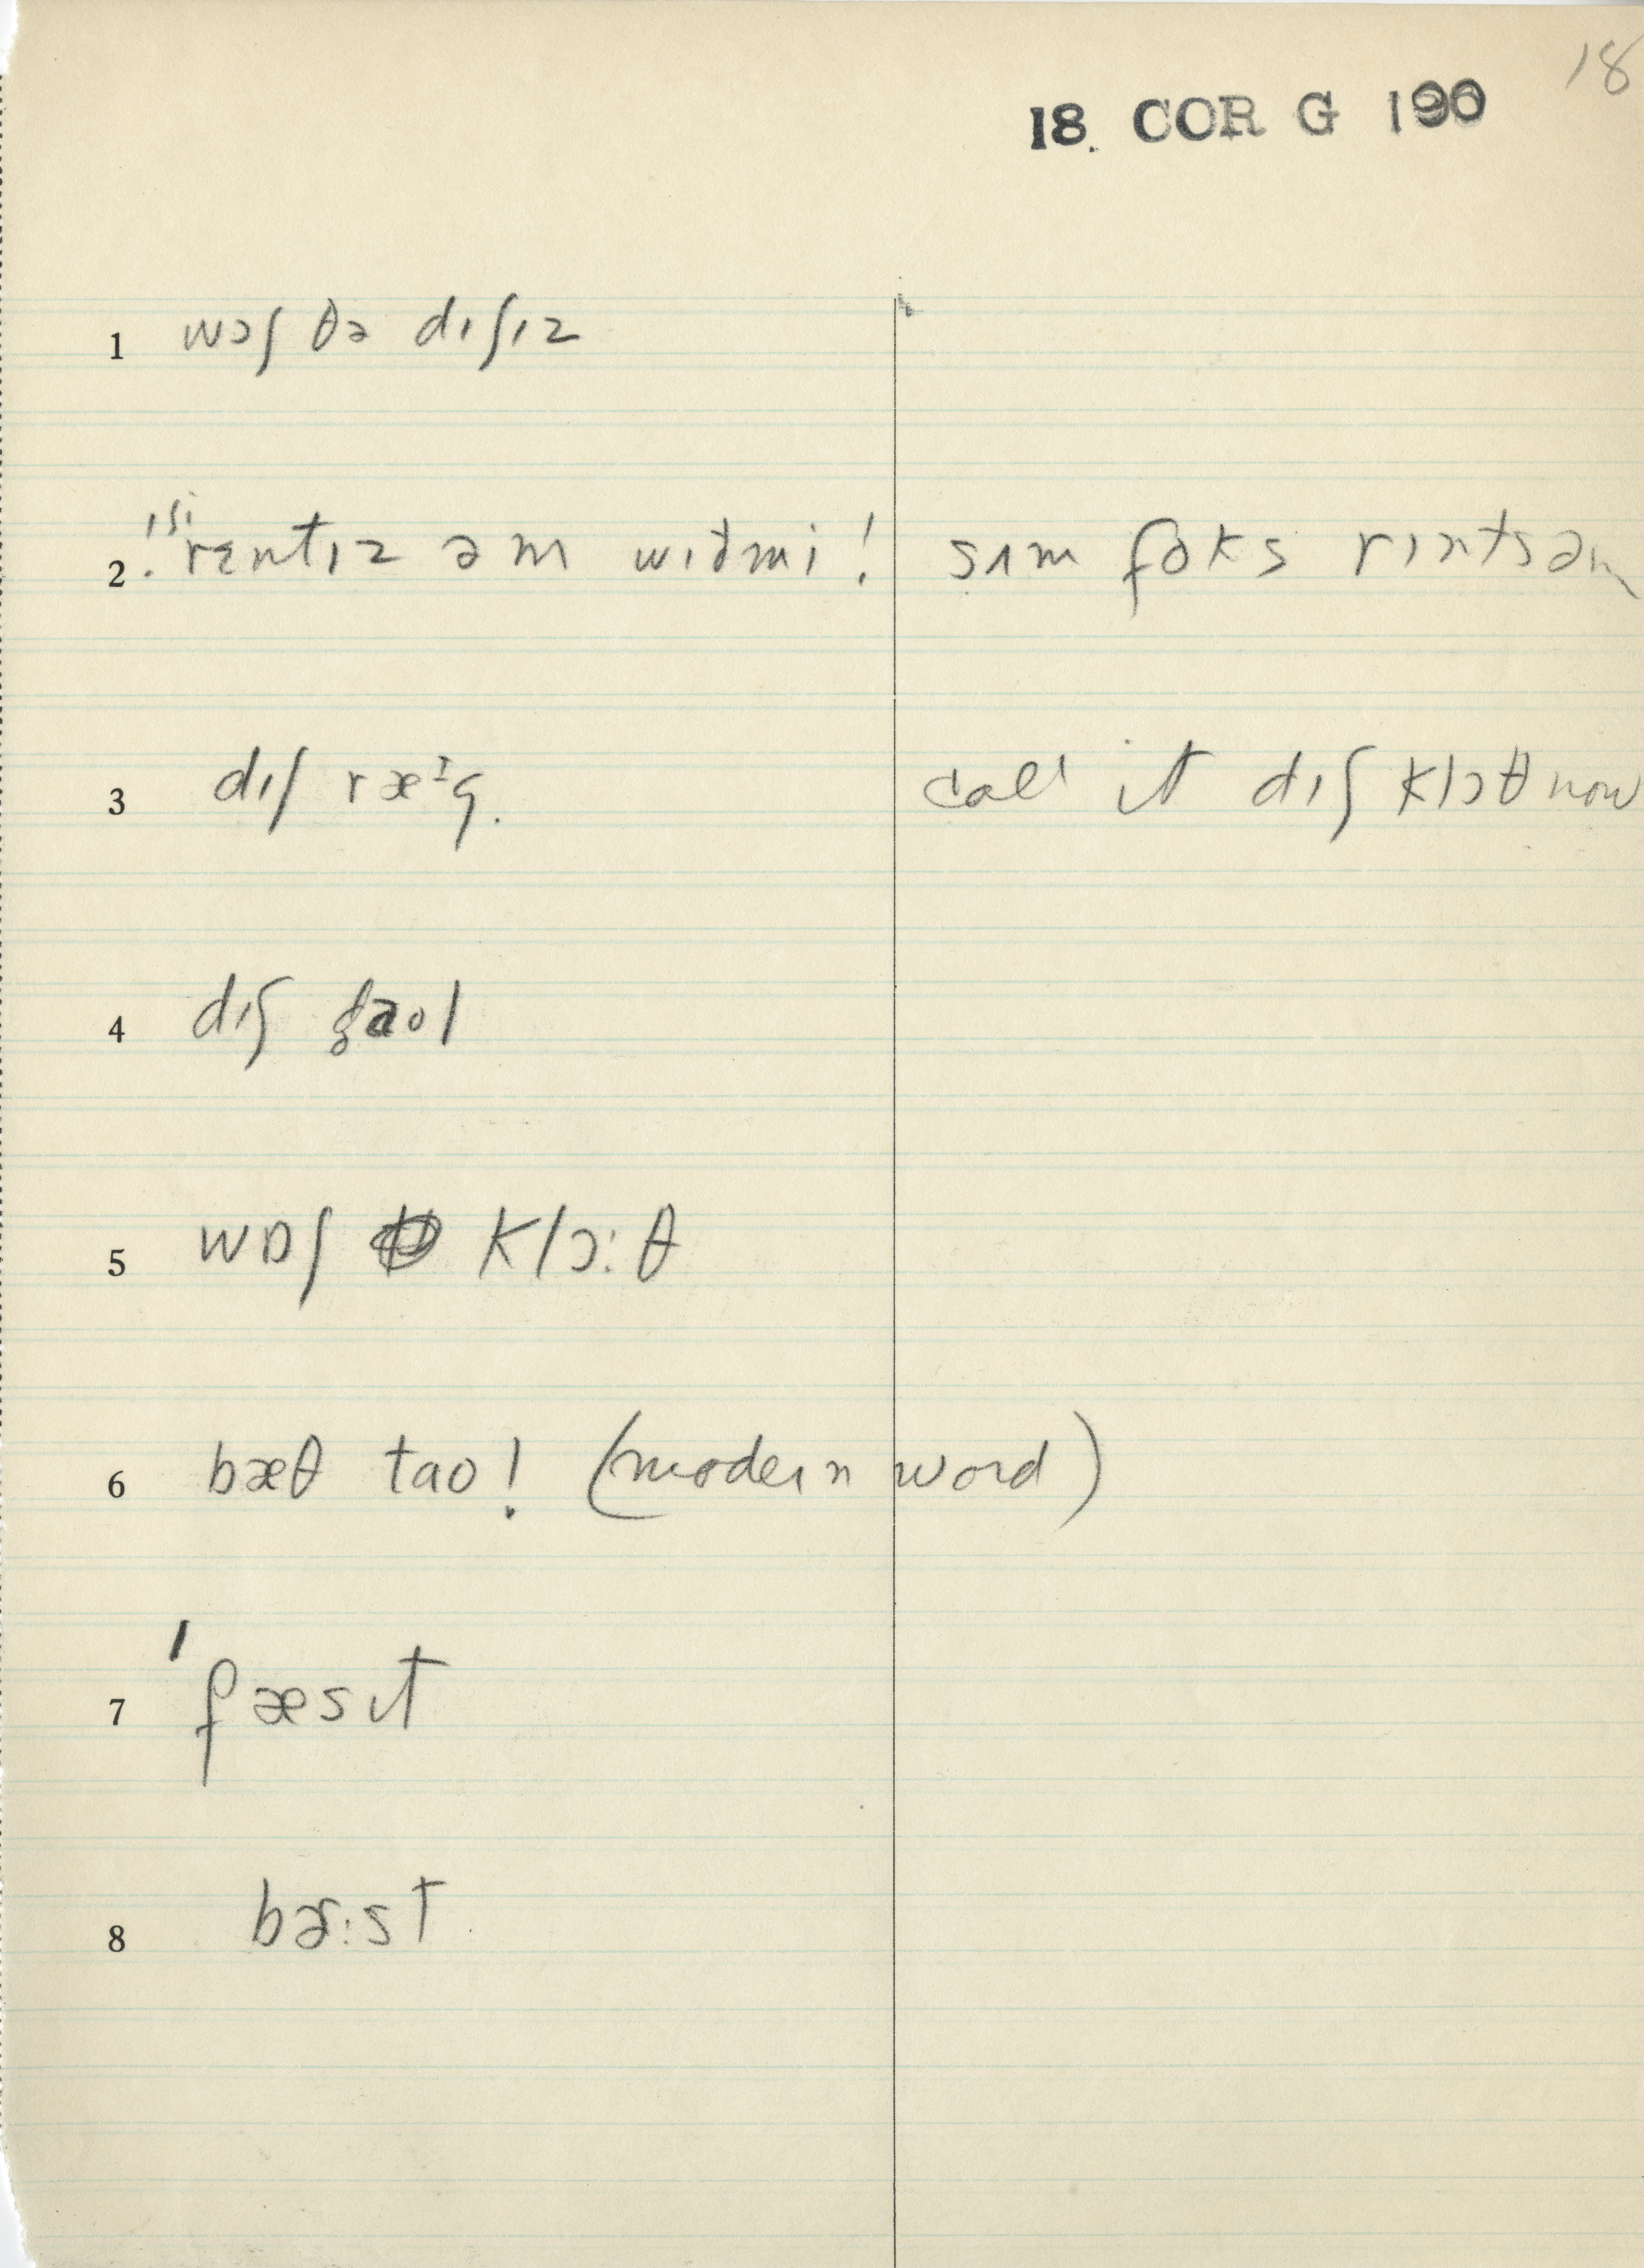 18
18. COR G 190
1 wɔʃ ðə dɪʃɪz
2 ʃi rɛntɪz əm wɪðmi! sʌm foks rɪntsəm
3 dɪʃ ræᶦg. call it dɪʃ klɔθ now
4 dɪʃ taol
5 wɒʃ klɔ:θ
6 bæθ tao! (modern word)
7 ˈfæsɪt
8 bɚ:st